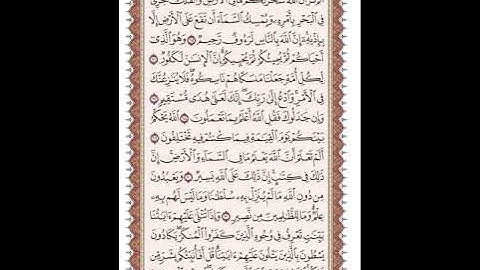 أَلَمْ تَرَ أَنَّ ٱللَّهَ سَخَّرَ لَكُم مَّا فِى ٱلْأَرْضِ وَٱلْفُلْكَ تَجْرِى
فِى ٱلْبَحْرِ بِأَمْرِهِۦ وَيُمْسِكُ ٱلسَّمَآءَ أَن تَقَعَ عَلَى ٱلْأَرْضِ إِلَّا
بِإِذْنِهِۦٓ إِنَّ ٱللَّهَ بِٱلنَّاسِ لَرَءُوفٌ رَّحِيمٌ ٦٥ وَهُوَ ٱلَّذِىٓ
أَحْيَاكُمْ ثُمَّ يُمِيتُكُمْ ثُمَّ يُحْيِيكُمْ إِنَّ ٱلْإِنسَٰنَ لَكَفُورٌ ٦٦
لِّكُلِّ أُمَّةٍ جَعَلْنَا مَنسَكًا هُمْ نَاسِكُوهُ فَلَا يُنَٰزِعُنَّكَ
فِى ٱلْأَمْرِ وَٱدْعُ إِلَىٰ رَبِّكَ إِنَّكَ لَعَلَىٰ هُدًى مُّسْتَقِيمٍ ٦٧
وَإِن جَٰدَلُوكَ فَقُلِ ٱللَّهُ أَعْلَمُ بِمَا تَعْمَلُونَ ٦٨ ٱللَّهُ يَحْكُمُ
بَيْنَكُمْ يَوْمَ ٱلْقِيَٰمَةِ فِيمَا كُنتُمْ فِيهِ تَخْتَلِفُونَ ٦٩
أَلَمْ تَعْلَمْ أَنَّ ٱللَّهَ يَعْلَمُ مَا فِى ٱلسَّمَآءِ وَٱلْأَرْضِ إِنَّ
ذَٰلِكَ فِى كِتَٰبٍ إِنَّ ذَٰلِكَ عَلَى ٱللَّهِ يَسِيرٌ ٧٠ وَيَعْبُدُونَ
مِن دُونِ ٱللَّهِ مَا لَمْ يُنَزِّلْ بِهِۦ سُلْطَٰنًا وَمَا لَيْسَ لَهُم بِهِۦ
عِلْمٌ وَمَا لِلظَّٰلِمِينَ مِن نَّصِيرٍ ٧١ وَإِذَا تُتْلَىٰ عَلَيْهِمْ ءَايَٰتُنَا
بَيِّنَٰتٍ تَعْرِفُ فِى وُجُوهِ ٱلَّذِينَ كَفَرُوا۟ ٱلْمُنكَرَ يَكَادُونَ
يَسْطُونَ بِٱلَّذِينَ يَتْلُونَ عَلَيْهِمْ ءَايَٰتِنَا قُلْ أَفَأُنَبِّئُكُم بِشَرٍّ مِّن